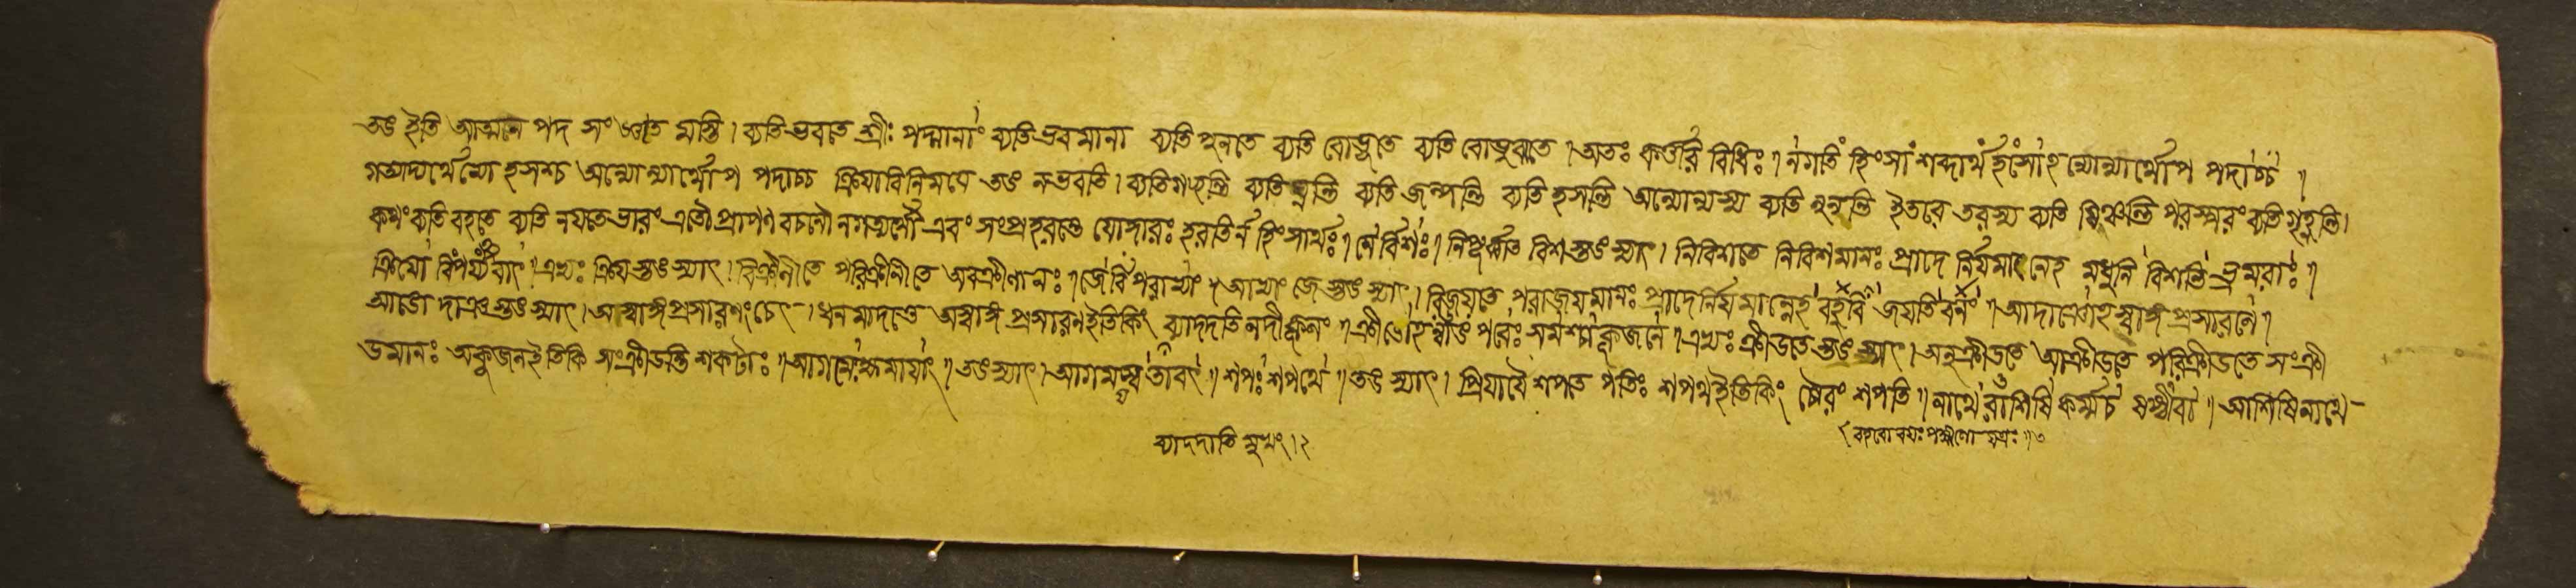 তঙ ইতি আত্মনে পদ সংজ্ঞাত মস্তি। ব্যতিভবতে শ্রীঃ পদ্মানাং ব্যতিভবমানা ব্যতি পুনতে ব্যতি ব্যতি । অতঃ কর্ত্তরি বিধিঃ। নগতি হিংসা শব্দার্থ হসোহ ন্যোন্যার্থোপ পদাচ্চ।
হসশ্চ অন্যোন্যার্থোপ পদাচ্চ ক্রিয়াবিনিময়ে তঙ নভবতি। ব্যতিগচ্ছন্তি ব্যতিঘ্নন্তি ব্যতি জল্পন্তি ব্যতি হসন্তি অন্যোন্যস্য ব্যতি লুনন্তি ইতরে তরস্য ব্যতি সিঞ্চন্তি পরস্পরং ব্যতি গৃহ্নন্তি।
কথং ব্যতি বহতে ব্যতি নয়তে ভারং এতৌ প্রাপণ বচনৌ নগত্যর্থৌ এবং সংপ্রহরন্তে যোদ্ধারঃ হরতির্ন হিংসার্থঃ। নের্বিশঃ। নিপূর্ব্বাত বিশ স্তঙ স্যাৎ। নিবিশতে নিবিশমানঃ প্রাদে র্নিয়মাৎ নেহ মধুনি বিশন্তি ভ্রমরাঃ।
ক্রিয়ো বিপর্য্যবাৎ। এভ্যঃ ক্রিয় স্তঙ স্যাৎ। বিক্রীণীতে পরিক্রীণীতে অবক্রীণানঃ। জের্বিপরাভ্যাং। আভ্যাং জে স্তঙ স্যাৎ। বিজয়তে পরাজয়মানঃ প্রাদের্নিয়মান্নেহ বহুবি জয়তি বনং। আদাঞোহ স্বাঙ্গ প্রসারণে।
আঙো দাঞ স্তঙ স্যাৎ। অস্বাঙ্গ প্রসারণং চেৎ। ধন মাদত্তে অস্বাঙ্গ প্রসারণ ইতিকিং ব্যাদদতি নদীকূলং। ক্রীড়োহ ন্বাঙ পরেঃ সমশ্চাকূজনে। এভ্যঃ ক্রীড়তে স্তঙ স্যাৎ। অনুক্রীড়তে আক্রীড়তে পরিক্রীড়তে সংক্রী
ড়মানঃ অকূজনইতিকি সংক্রীড়ন্তি শকটাঃ। আগমেঃ ক্ষমায়াং। তঙ স্যাৎ। আগময়স্ব তাবৎ। শপঃ শপথে। তঙ স্যাৎ। প্রিয়ায়ৈ শপতে পতিঃ শপথইতিকিং চৌরং শপতি। নাথেরাশিষি কর্ম্মচ ষষ্ঠীবা। আশিষি নাথে-
ব্যাদদাতি মুখং।২
বহবো বয়ঃ পক্ষীণো যত্রঃ॥৩